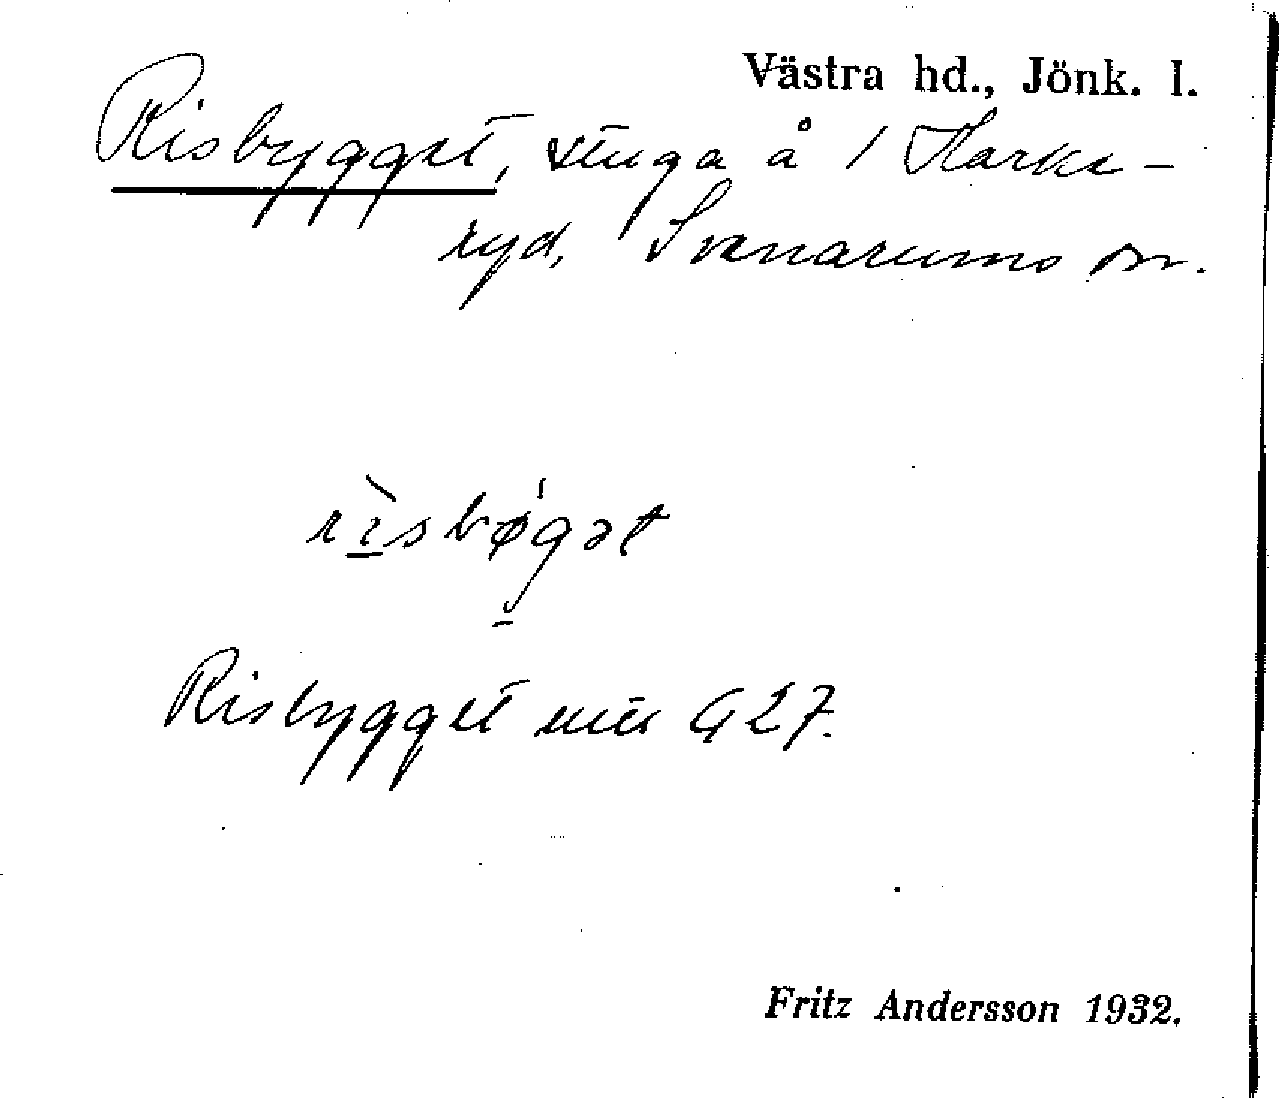 Västra hd., Jönk. l.
Risbygget, stuga å 1 Harke-
ryd, Svenarums sn.
rìsbøgət
Risbygget G 27.
Fritz Andersson 1932.